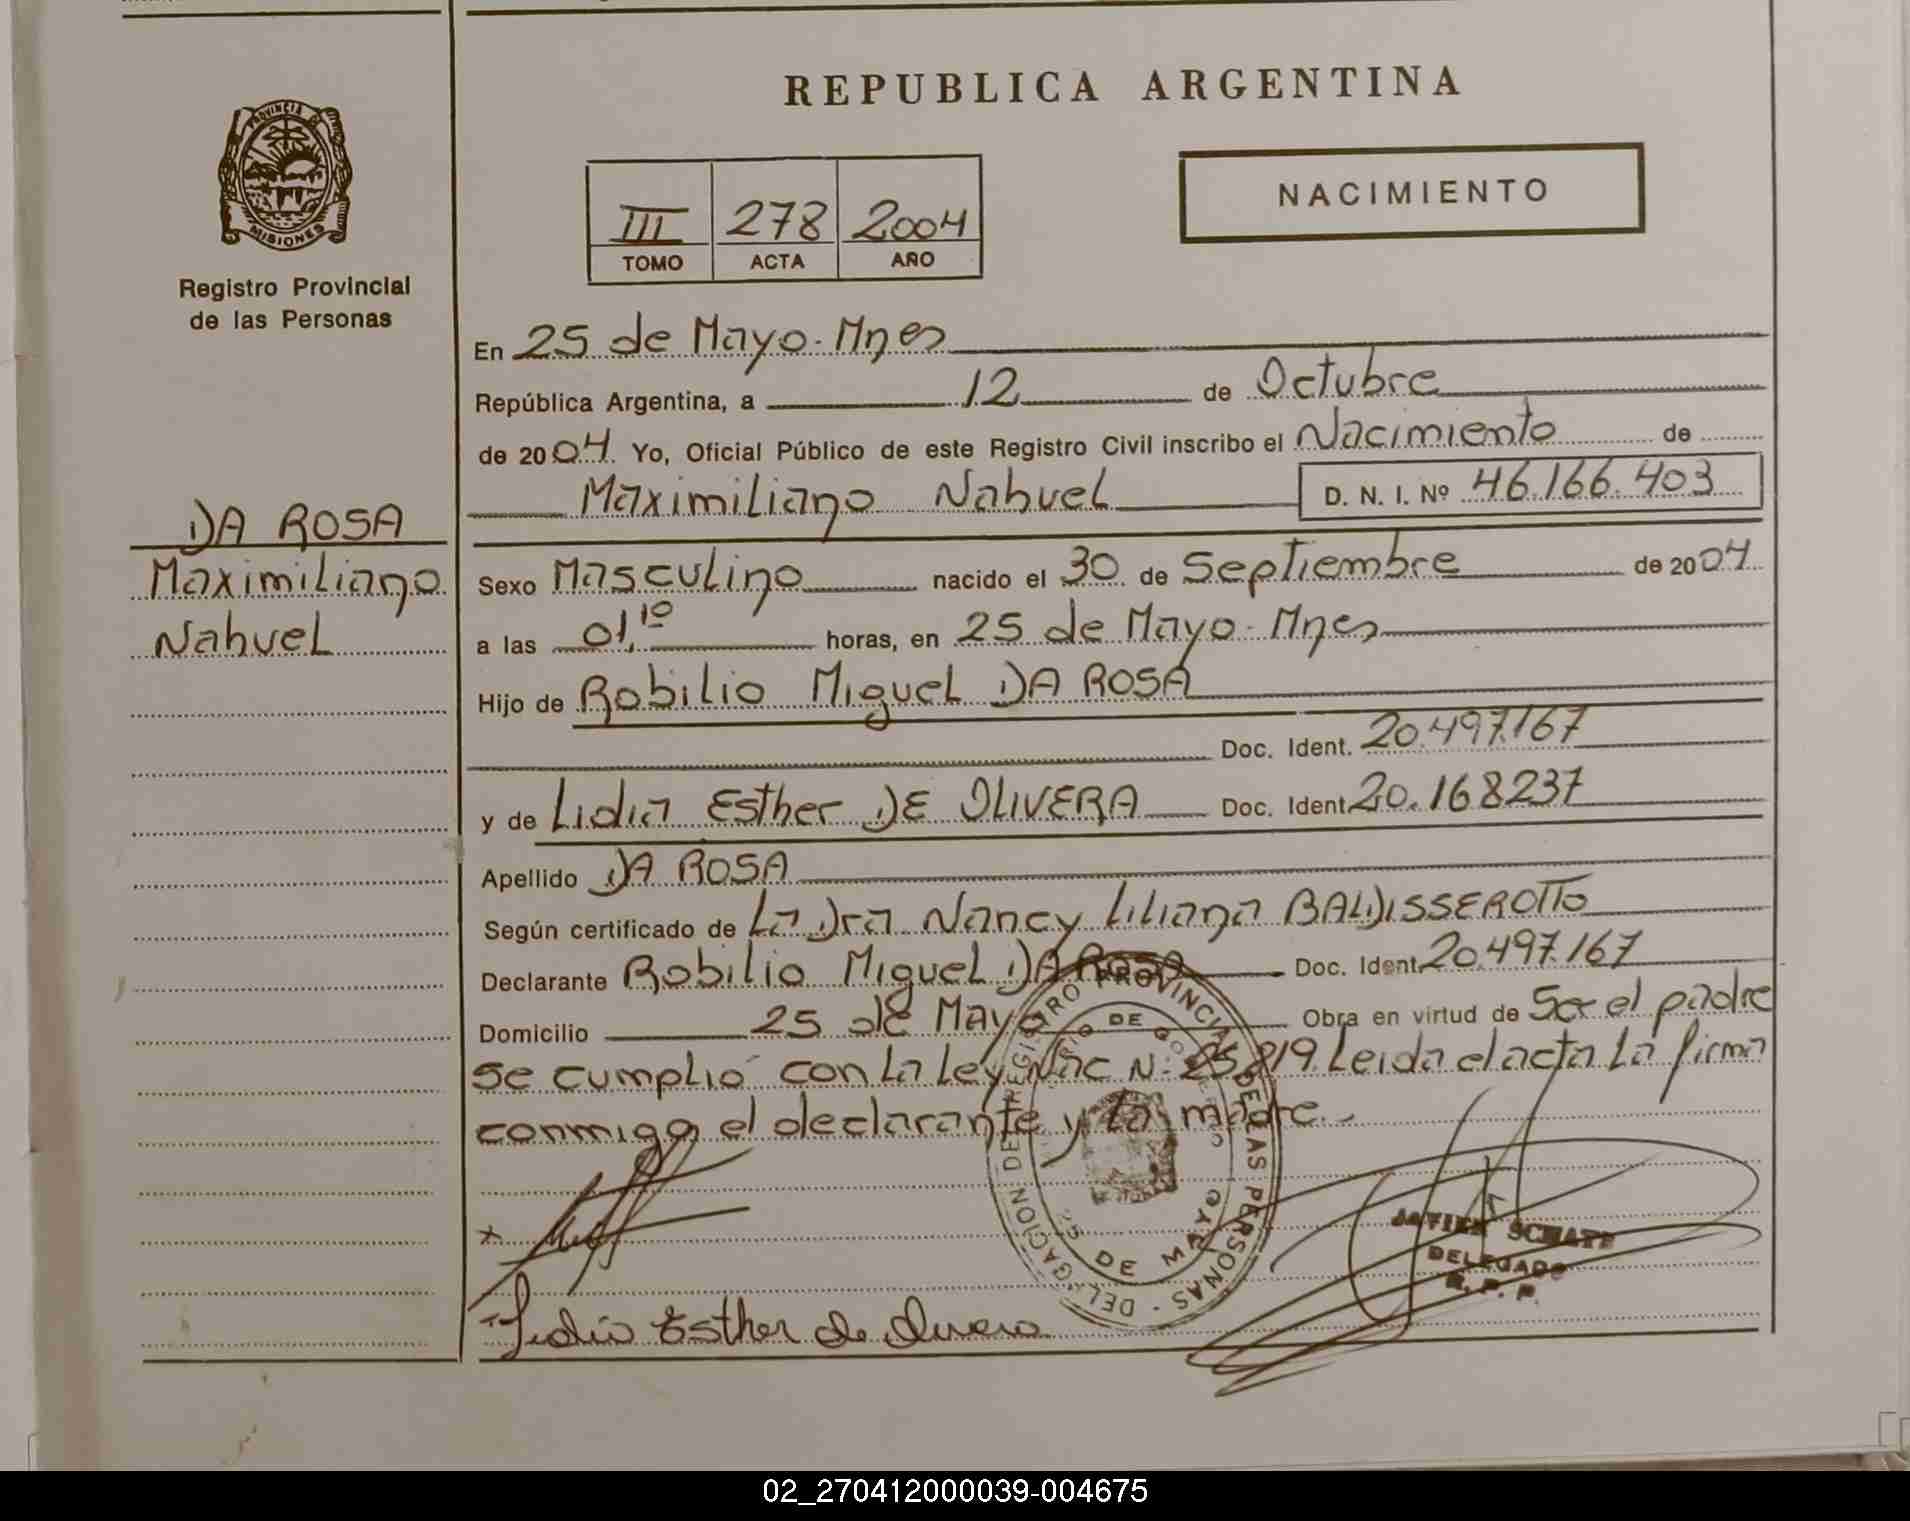 REPUBLICA ARGENTINA
PROVINCIA DE
MISIONES
Registro Provincial
de las Personas
III 278 2004
TOMO ACTA AÑO
NACIMIENTO
En 25 de Mayo-Mnes
República Argentina, a 12 de Octubre
de 2004. Yo, Oficial Público de este Registro Civil inscribo el Nacimiento de
Maximiliano Nahuel D. N. I. Nº 46.166.403
DA ROSA
Maximiliano
Nahuel
Sexo Masculino nacido el 30 de Septiembre de 2004
a las 01,10 horas, en 25 de Mayo-Mnes
Hijo de Robilio Miguel DA ROSA
Doc. Ident. 20.497.167
y de Lidia Esther DE OLIVERA Doc. Ident. 20.168237
Apellido DA ROSA
Según certificado de La Dra Nancy Liliana BALDISSEROTTO
Declarante Robilio Miguel DA ROSA Doc. Ident. 20.497.167
Domicilio 25 de Mayo Obra en virtud de Ser el padre
se cumplió con la Ley Nac N: 25.819. Leida el acta La firma
conmigo el declarante y la madre.-
DELEGACION DEL REGISTRO PROVINCIAL DE LAS PERSONAS
25 DE MAYO
JAVIER
DELEGADO
R. P. P.
Lidia Esther de Olivera
02_270412000039-004675